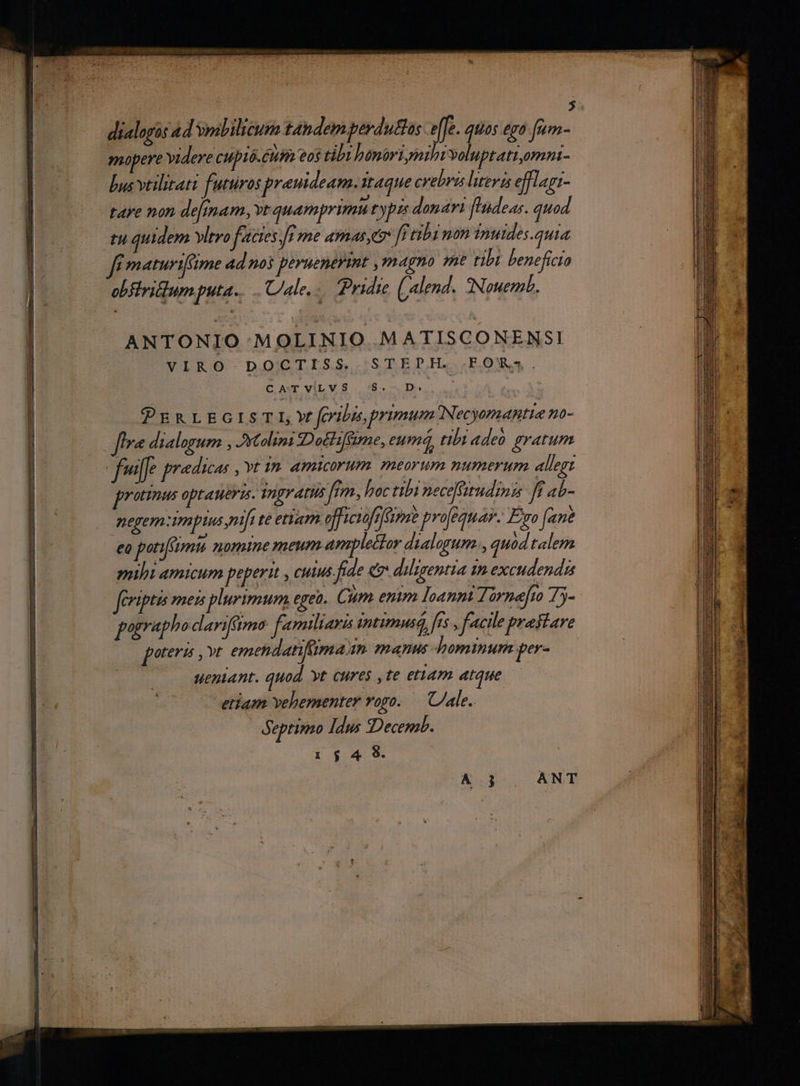 5
dialogos ad vmbilicum tandem perductos esse. quos ego sum-
mopere videre cupiò. cùm eos tibi honori, mihi voluptati, omni-
bus vtilitati futuros præuideam. itaque crebris literis efflagi-
tare non desinam, vt quamprimũ typis donari studeas. quod
tu quidem vltro facies, si me amas, & si tibi non inuides. quia
si maturissime ad nos peruenerint , magno me tibi beneficio
obstrictum puta. Vale. Pridie Calend. Nouemb.
ANTONIO MOLINIO MATISCONENSI
VIRO DOCTISS. STEPH. FOR.
CATVLVS S. D.
PERLEGISTI, vt scribis, primum Necyomantiæ no-
stræ dialogum , Molini Doctissime, eumq́; tibi adeò gratum
fuisse prædicas , vt in amicorum meorum numerum allegi
protinus optaueris. ingratus sim, hoc tibi necessitudinis si ab-
negem: impius, nisi te etiam officiosissimè prosequar. Ego sanè
eo potissimũ nomine meum amplector dialogum , quòd talem
mihi amicum peperit , cuius fide & diligentia in excudendis
scriptis meis plurimum egeo. Cùm enim Ioanni Tornæsio Ty-
pographo clarissimo familiaris intimusq́; sis , facile præstare
poteris , vt emendatissima in manus hominum per-
ueniant. quod vt cures , te etiam atque
etiam vehementer rogo. Vale.
Septimo Idus Decemb.
1548.
A 3 ANT